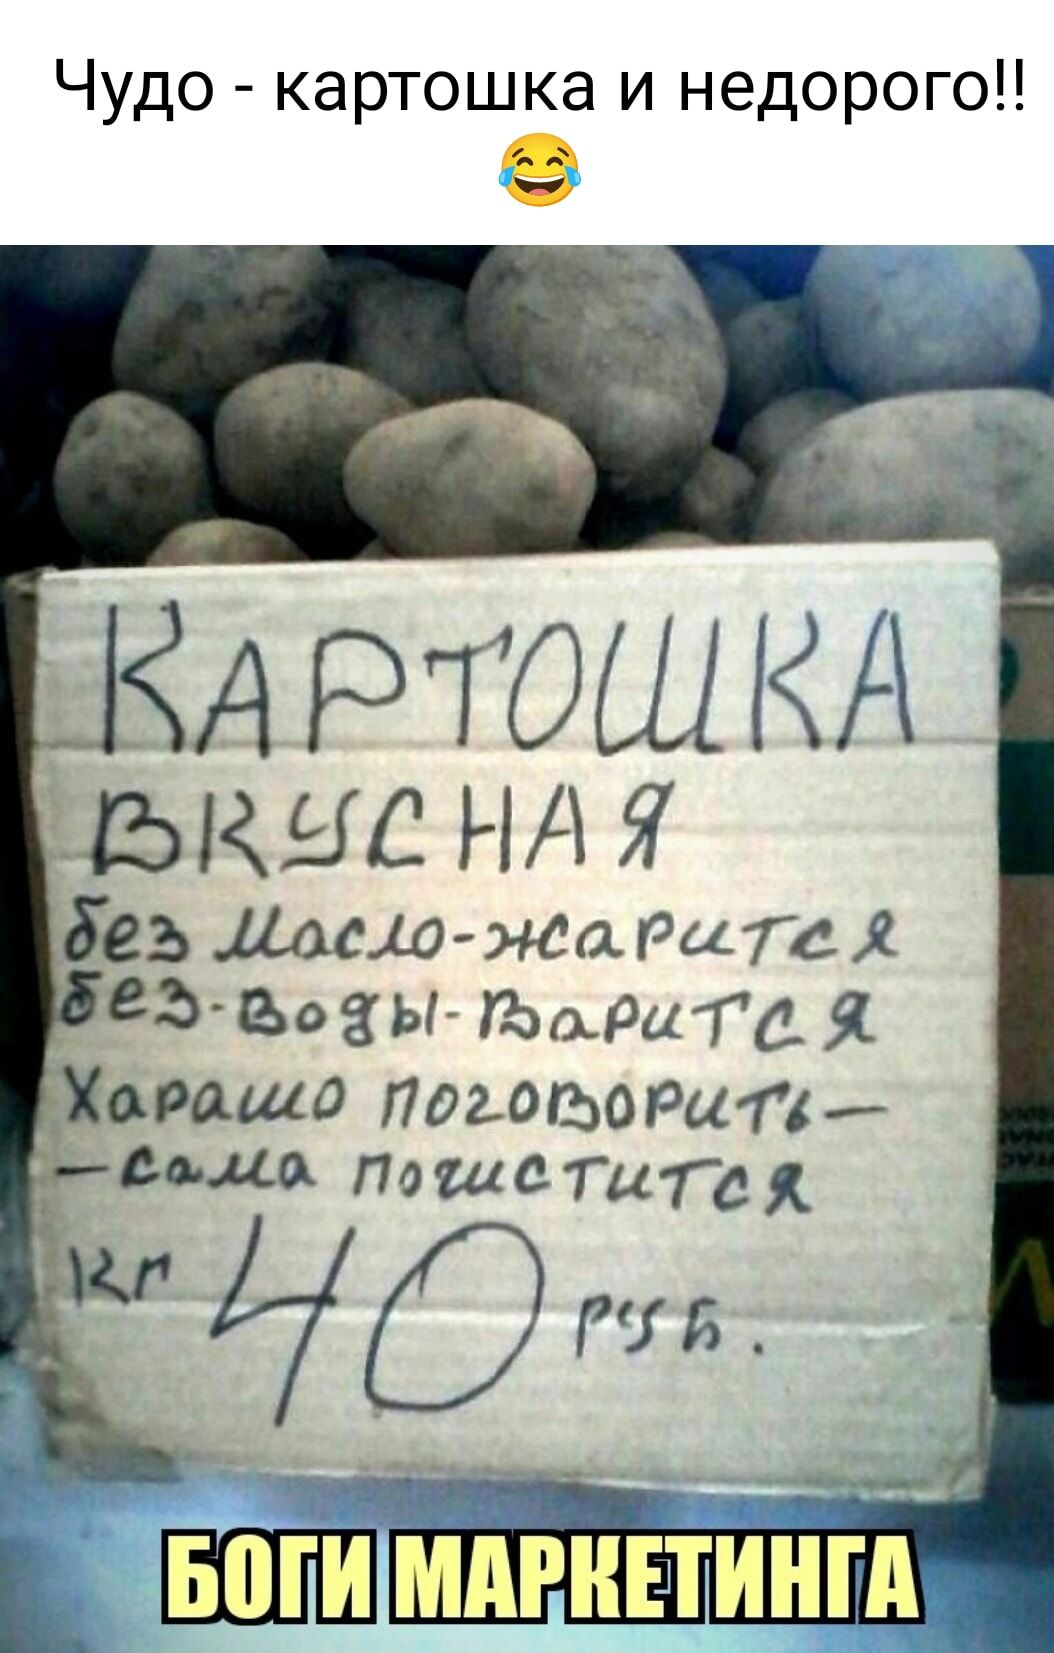 Чудо - картошка и недорого!!
😂
КАРТОШКА
ВКУСНАЯ
без масло-жарится
без-воды-варится
Харашо поговорить—
—сама почистится
кг 40 руб.
БОГИ МАРКЕТИНГА